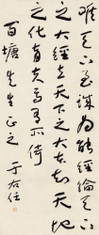 唯天下至誠為能經綸天下
之大經立天下之大本知天地
之化育夫焉有所倚
百塘先生正之 于右任